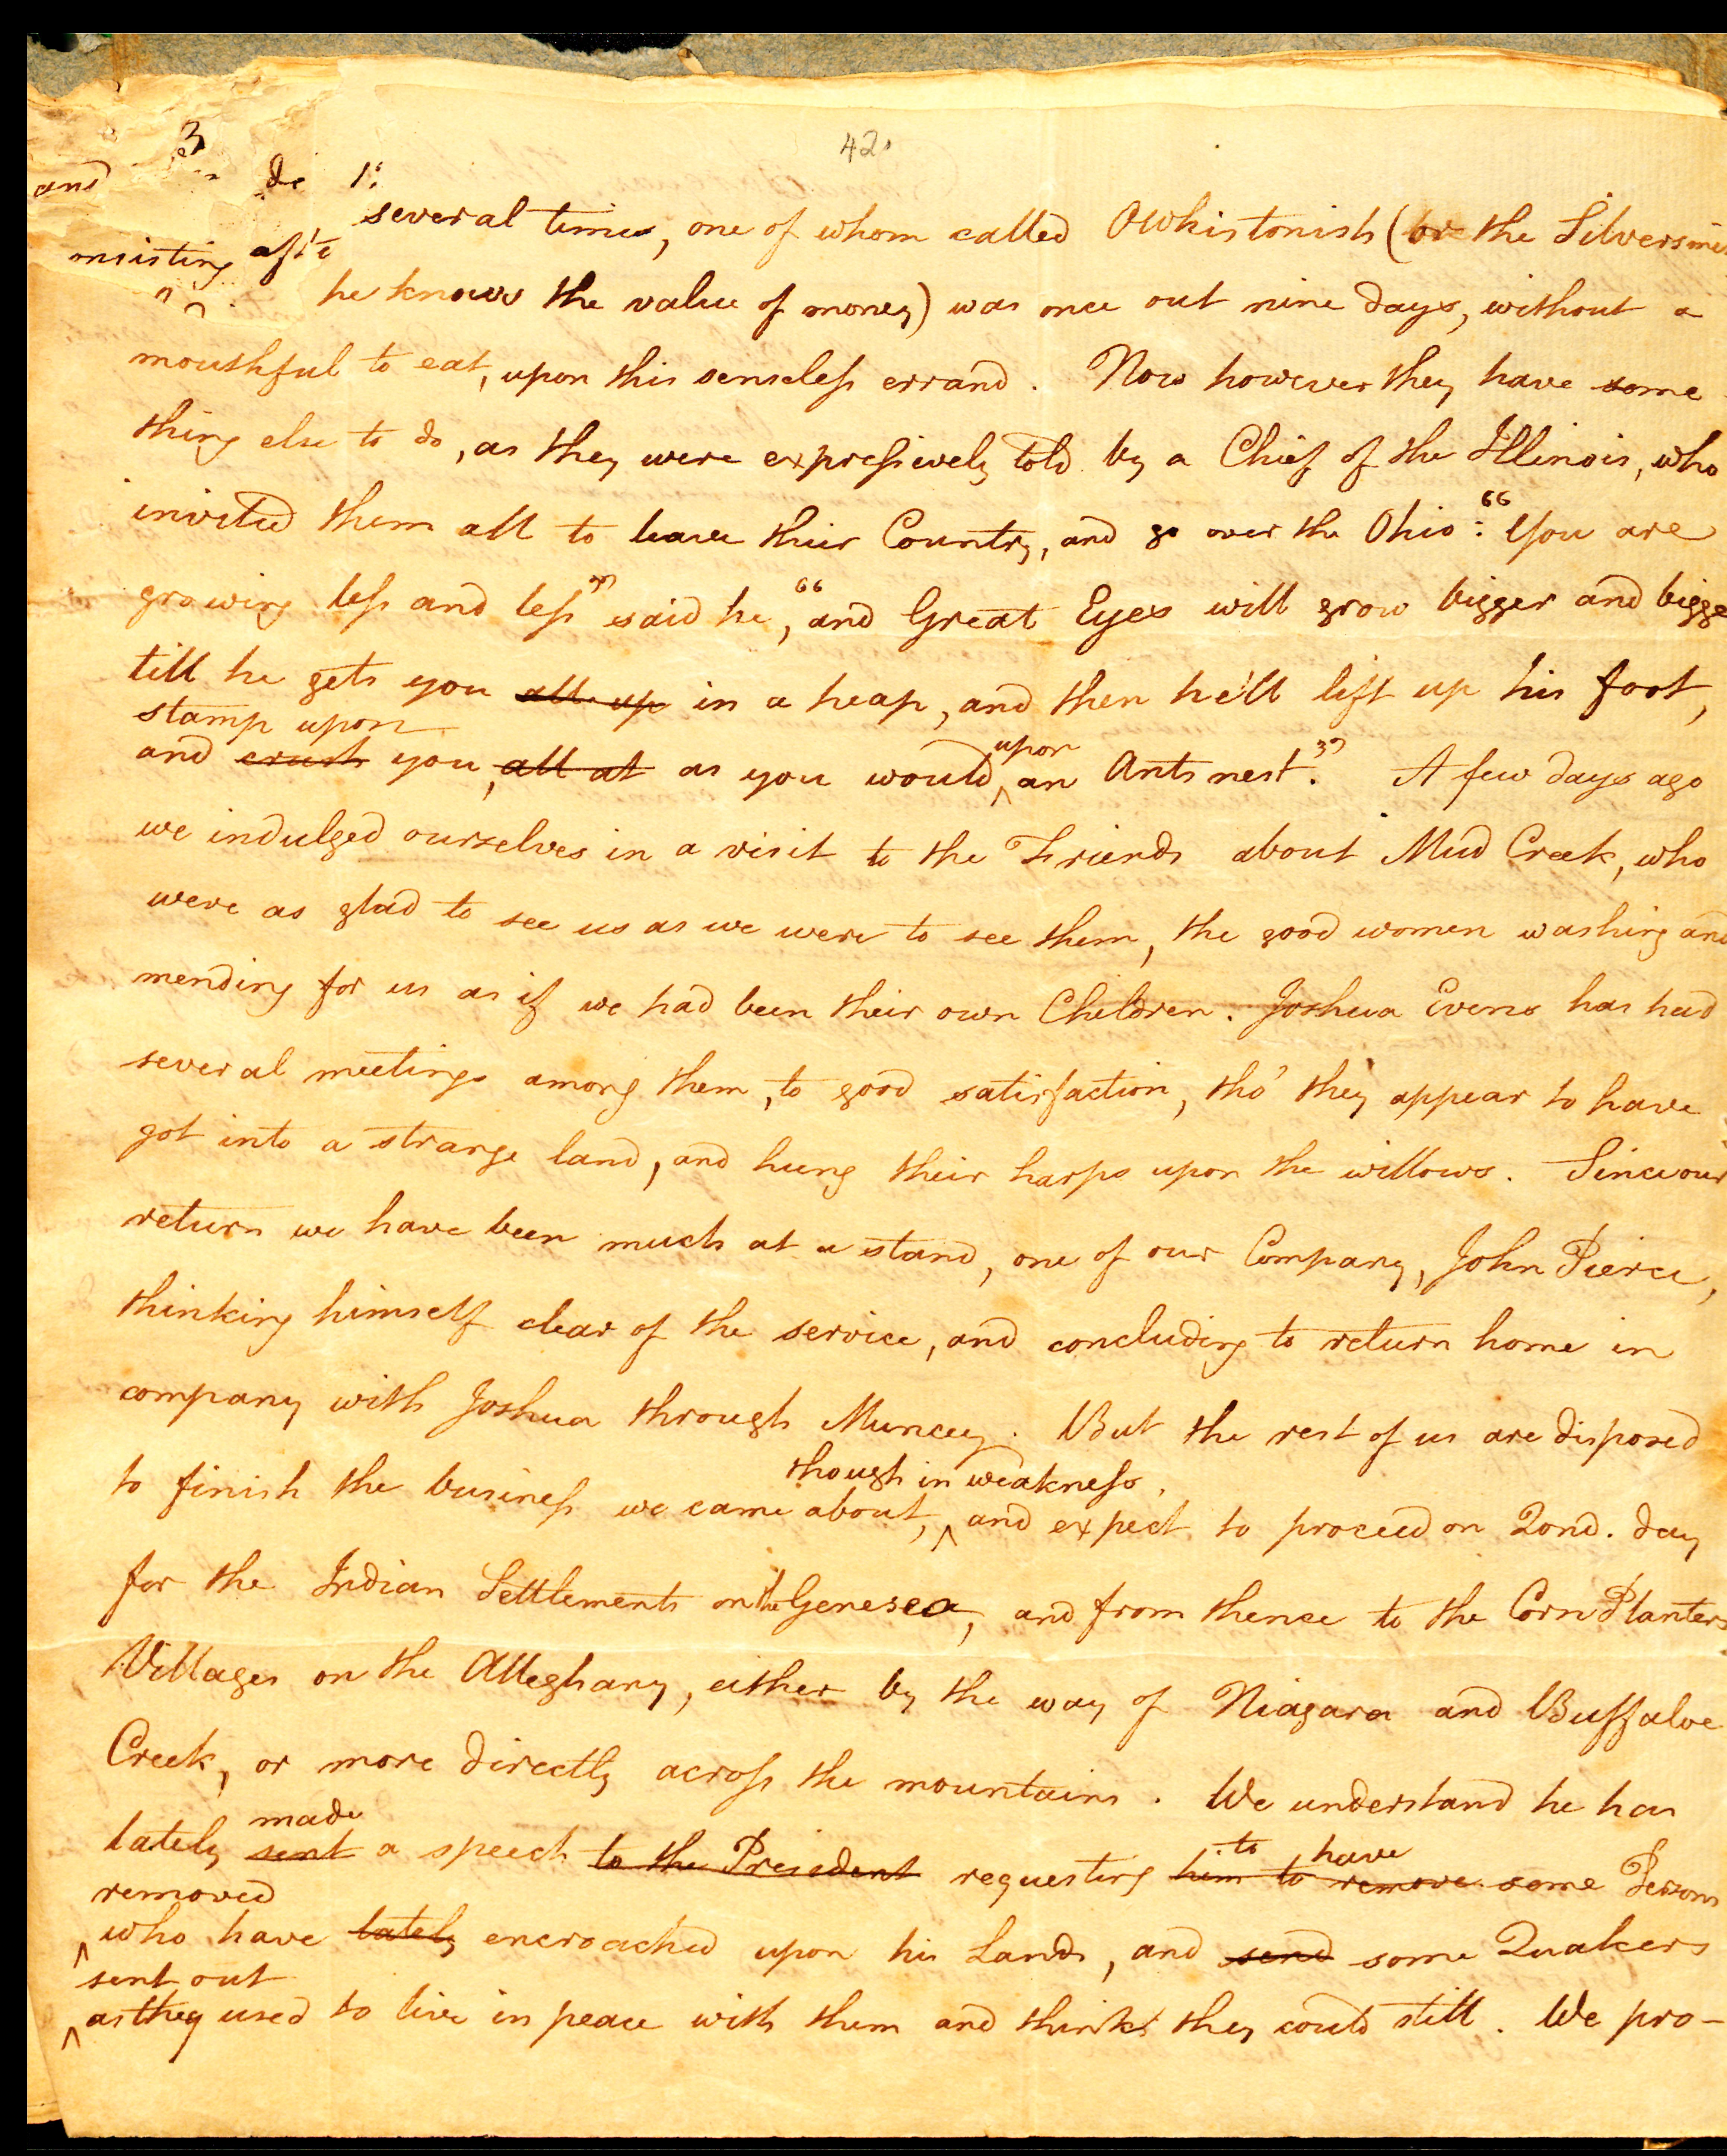 3
42.
and
several times, one of whom called Owhistonish (or the Silversmi
insisting
he knows the value of money) was once out nine days, without a
mouthful to eat, upon this senseless errand. Now however they have some
thing else to do, as they were expressively told by a Chief of the Illinois, who
invited them all to leave their Country, and go over the Ohio: "You are
growing less and less" said he, "and Great Eyes will grow bigger and bigge
till he gets you all up in a heap, and then he'll lift up his foot,
stamp upon
and crush you, all at as you would upon an Ants nest." A few days ago
we indulged ourselves in a visit to the Friends about Mud Creek, who
were as glad to see us as we were to see them, the good women washing and
mending for us as if we had been their own Children. Joshua Evens has had
several meetings among them, to good satisfaction, tho' they appear to have
got into a strange land, and hung their harps upon the willows. Since our
return we have been much at a stand, one of our Company, John Pierce,
thinking himself clear of the service, and concluding to return home in
company with Joshua through Muncey. But the rest of us are disposed
though in weakness,
to finish the business we came about, and expect to proceed on 2ond. day
for the Indian Settlements on the Genesea, and from thence to the Corn Planters
Villages on the Alleghany, either by the way of Niagara and Buffaloe
Creek, or more directly across the mountains. We understand he has
made to have
lately sent a speech to the President requesting him to remove some Persons
removed
who have lately encroached upon his Lands, and send some Quakers
sent out
as they used to live in peace with them and thinks they could still. We pro-